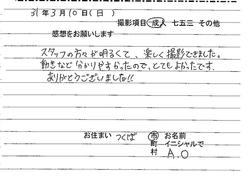 31年3月10日(日)
撮影項目 成人 七五三 その他
感想をお願いします
スタッフの方々が明るくて、楽しく撮影できました。
動きなど分かりやすかったので、とてもよかったです。
ありがとうございました!!
お住まい つくば 市 お名前
町 イニシャルで
村 A.O